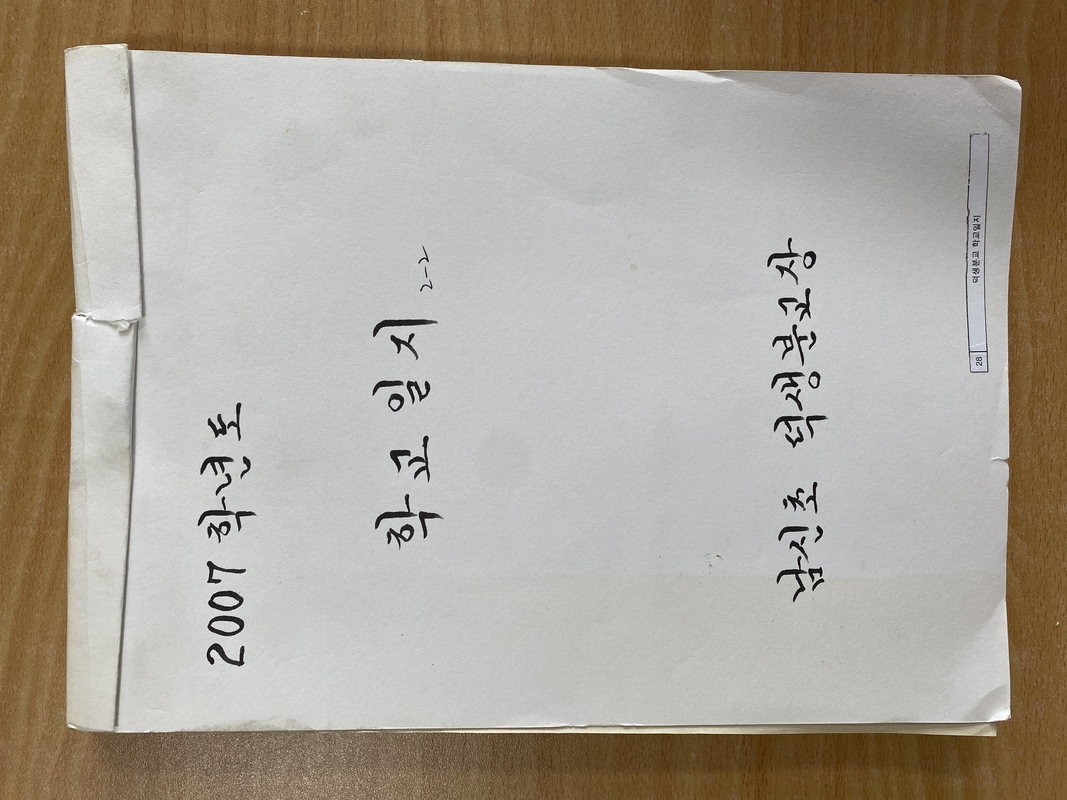 2007 학년도
학교일지 2-2
남신초 덕생분교장
28 덕생분교 학교일지